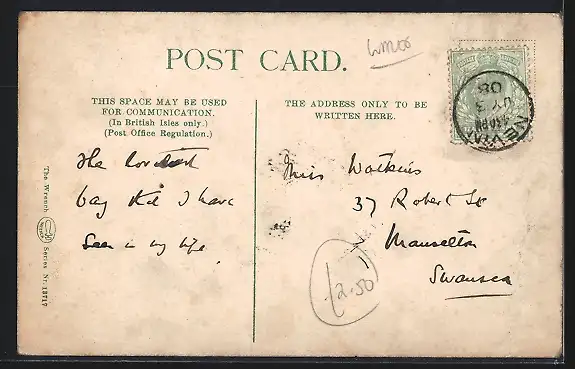 POST CARD.
THIS SPACE MAY BE USED
FOR COMMUNICATION.
(In British Isles only.)
(Post Office Regulation.)
THE ADDRESS ONLY TO BE
WRITTEN HERE.
The
bay that I have
Seen in my life
Miss Watkins
37 Robert St
Manselton
Swansea
2.50
The Wrench Series Nr. 13717
4.30PM
JY 3
08